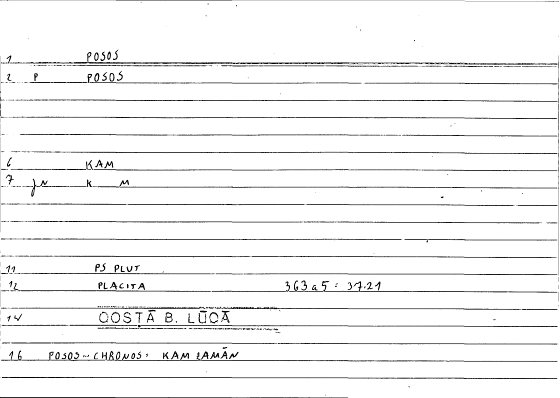 1 POSOS
2 P POSOS
6 KAM
7 JN K M
11 PS PLUT
12 PLACITA 363a5 : 37.21
14 QOSTĀ B. LŪQĀ
16 POSOS ~ CHRONOS: KAM ZAMĀN